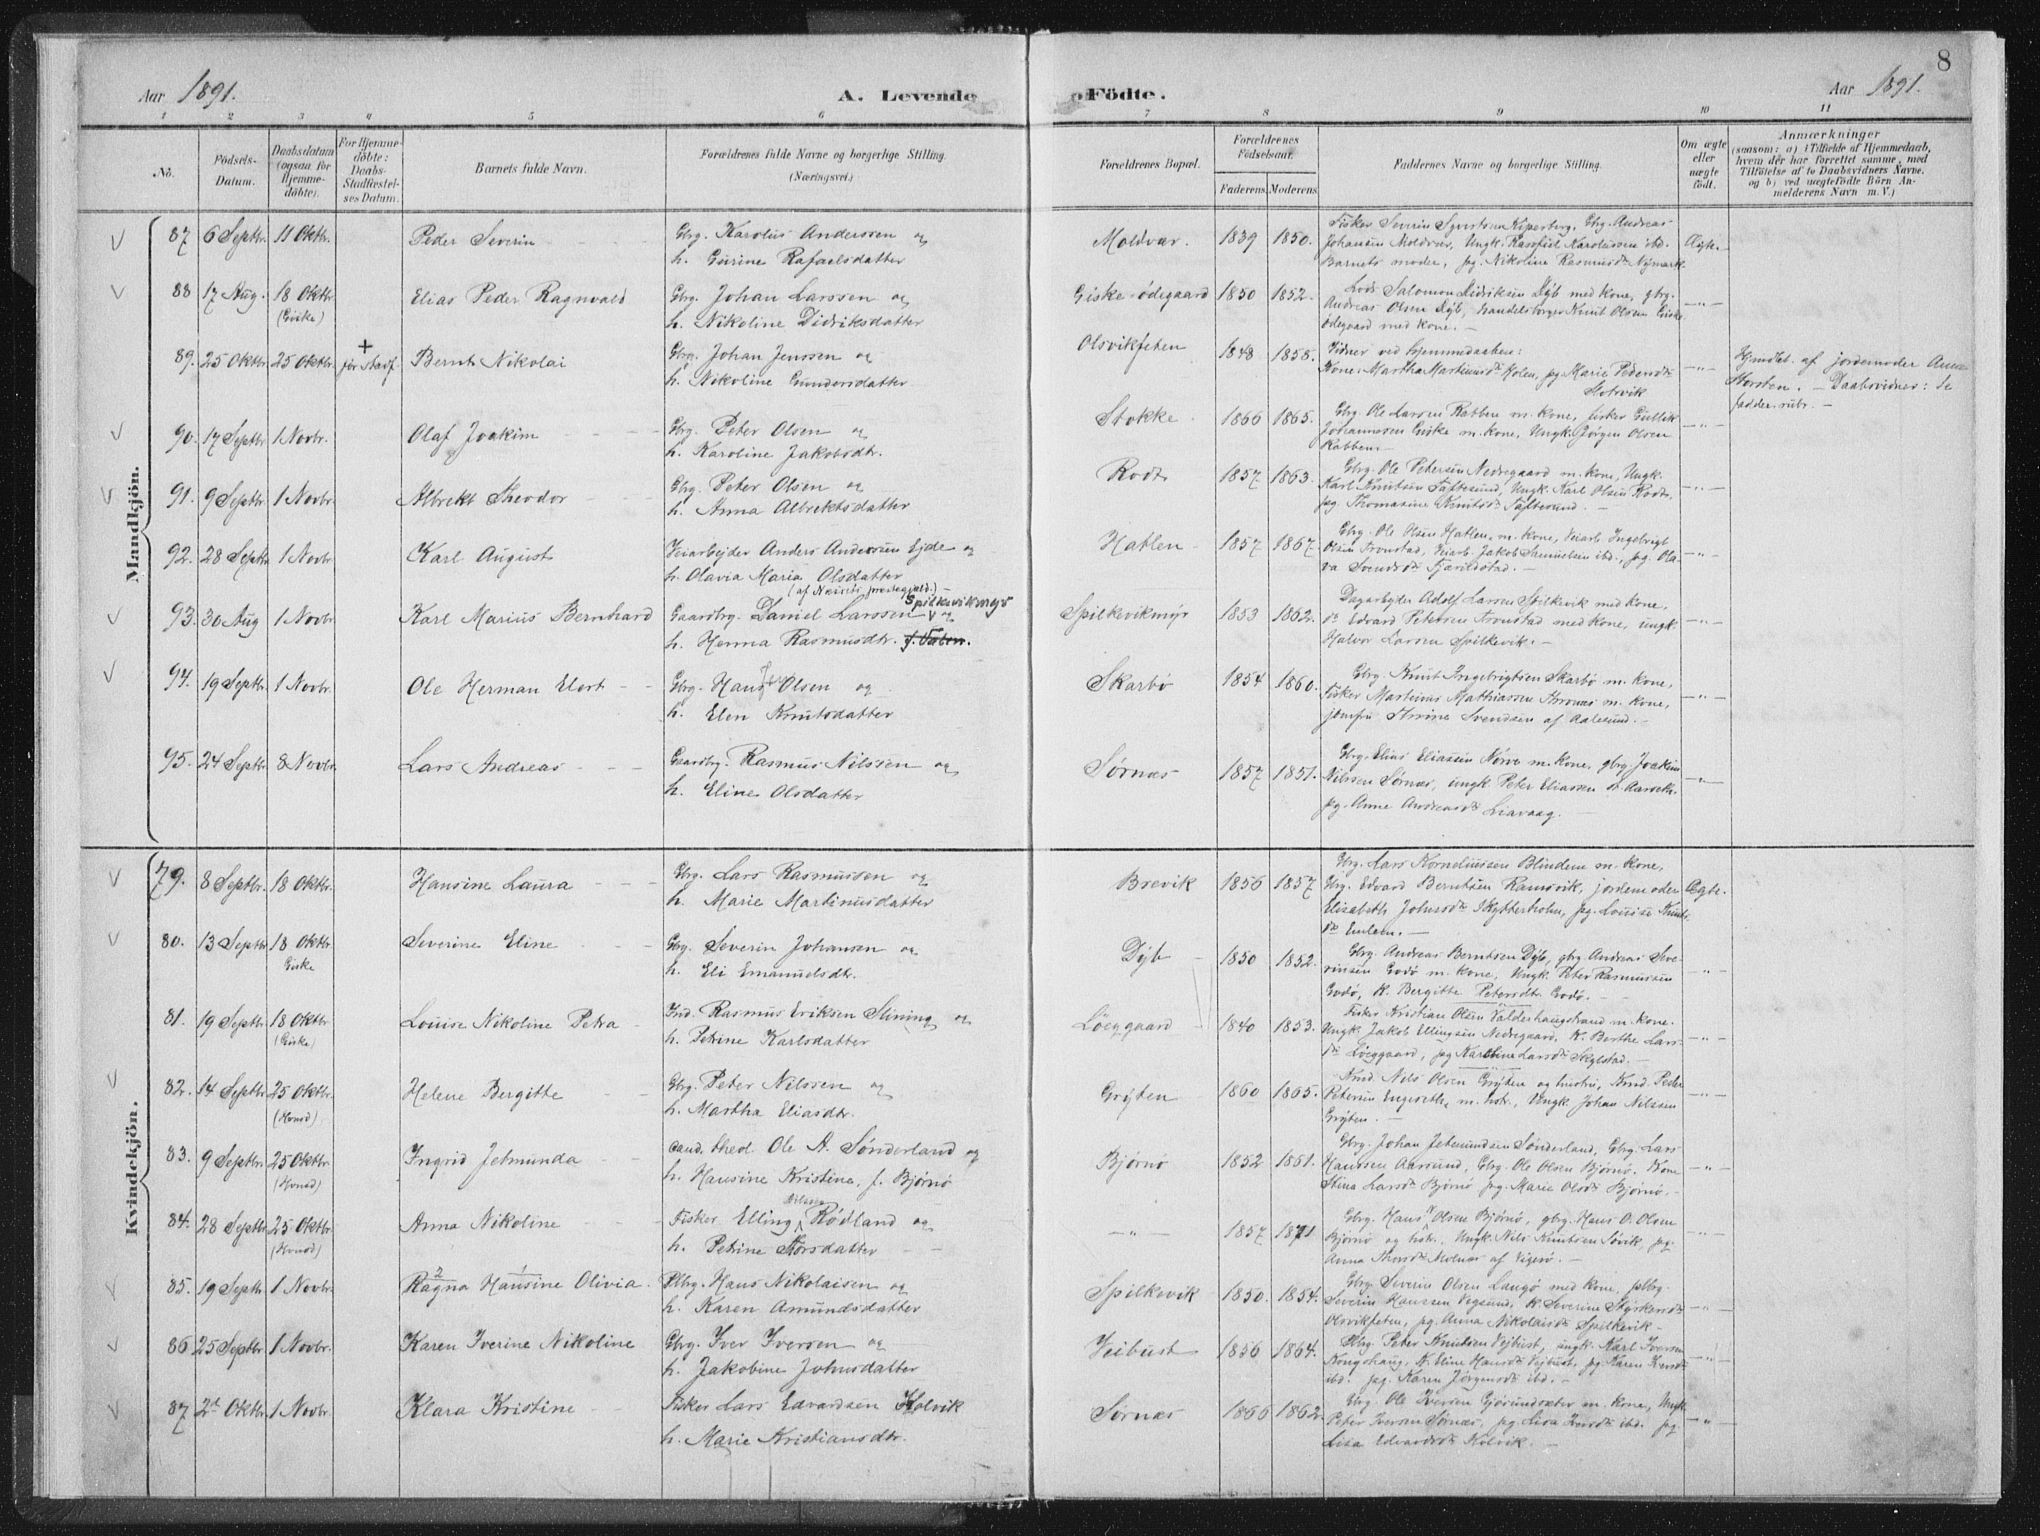 8
Aar 1891.
A. Levende
Födte.
Aar 1891.
1 2 3 4 5 6 7 8 9 10 11
No.
Födsels-Datum.
Daabsdatum (ogsaa for Hjemme-döbte).
For Hjemme-döbte: Daabs-Stadfæstel-ses Datum.
Barnets fulde Navn.
Forældrenes fulde Navne og borgerlige Stilling. (Næringsvei.)
Forældrenes Bopæl.
Forældrenes Födselsaar.
Faderens. Moderens.
Faddernes Navne og borgerlige Stilling.
Om ægte eller uægte födt.
Anmærkninger
(saasom: a) i Tilfælde af Hjemmedaab, hvem der har forrettet samme, med Tilföielse af to Daabsvidners Navne. og b) ved uægtefödte Börn An-melderens Navn m. V.)
Mandkjön.
87 6 Septbr. 11 Oktbr. Peder Severin Gbrg. Karolus Anderssen og
h. Gurine Rafaelsdatter
Moldvær. 1839 1850.
Fisker Severin Syvertsen Kiperberg, Gbrg. Andreas
Johansen Moldvær, Ungk. Rasofiel Karolussen ibd.
Barnets moder, pg. Nikoline Rasmusdt. Nymark
Ægte.
88 17 Aug. 18 Oktbr. (Giske) Elias Peder Ragnvald Gbrg. Johan Larssen og
h. Nikoline Didriksdatter
Giske-ødegaard 1850 1852.
Lods Salomon Didriksen Dyb med kone, gbrg.
Andreas Olsen Dyb, handelsborger Knut Olsen Giske
ødegaard med kone. —
— " —
89. 25 Oktbr. 25 Oktbr. + før Stadf. Bernt Nikolai Gbrg. Johan Jenssen og
h. Nikoline Gundersdatter
Olsvikfeten 1848 1855.
Vidner ved hjemmedaaben:
Kone Martha Martinusdt. Holen, pg. Marie Pedersdt.
Slotvik
— " —
Hjmdbt. af jordemoder Anne
Korsten. — Daabsvidner: se
fadder-rubr. —
90. 17 Septbr. 1 Novbr. Olaf Joakim Gbrg. Peter Olsen og
h. Karoline Jakobsdtr.
Stokke 1866 1865.
Gbrg. Ole Larsen Rabben m. kone, fisker Gullik
Johannesen Giske m. kone, Ungk. Jørgen Olsen
Rabben —
— " —
91. 9 Septbr. 1 Novbr. Albrekt Theodor Gbrg. Peter Olsen og
h. Anna Albrektsdatter
Rødt 1857 1863.
Gbrg. Ole Petersen Nedregaard m. kone, Ungk.
Karl Knutsen Taftesund, Ungk. Karl Olsen Rødt,
pg. Thomasine Knutsdt. Taftesund. —
— " —
92. 28 Septbr. 1 Novbr. Karl August Veiarbejder Anders Anderssen Ejde og
h. Olavia Maria Olsdatter
(af Nesset præstegjeld.) —
Hatlen 1857 1867.
Gbrg. Ole Olsen Hatlen m. kone, Veiarb. Ingebrigt
Olsen Tronstad, Veiarb. Jakob Samuelsen ibd., pg. Ola-
va Svendsdt. Fjærildstad. —
— " —
93. 30 Aug 1 Novbr. Karl Marius Bernhard Gaardbrg. Daniel Larssen Spilkevikmyr og
h. Henna Rasmusdtr.
Spilkevikmyr 1853 1862.
Dagarbejder Adolf Larsen Spilkevik med kone,
do Edvard Petersen Tronstad med kone, ungk.
Halvor Larsen Spilkevik. —
— " —
94. 19 Septbr. 1 Novbr. Ole Herman Elert Gbrg. Hans Olsen og
h. Elen Knutsdatter
Skarbø 1854 1860.
Gbrg. Knut Ingebrigtsen Skarbø m. kone,
fisker Martinus Mathiassen m. kone,
jomfru Svendsen af Aalesund. —
— " —
95. 24 Septbr. 8 Novbr. Lars Andreas Gaardbrg. Rasmus Nilssen og
h. Eline Olsdatter
Sørnæs 1857 1851.
Gbrg. Elias Eliassen Nørve m. kone, gbrg. Joakim
Nilssen Sørnæs, ungk. Peter Eliassen Aarseth.
pg. Anne Andreasdt. Liavaag.
— " —
Kvindekjön.
79. 8 Septbr. 18 Oktbr. Hansine Laura Gbrg. Lars Rasmussen og
h. Marie Martinusdatter
Brevik 1856 1857
Gbrg. Lars Korneliussen Blindem m. kone,
Gbrg. Edvard Berntsen Ramsvik, jordemoder
Elisabeth Johnsdt. Skytterholm, pg. Louise Knuts-
dt. Emlem. —
Ægte.
80. 13 Septbr. 18 Oktbr. Giske Severine Eline Gbrg. Severin Johansen og
h. Eli Emanuelsdtr.
Dyb 1850 1852.
Gbrg. Andreas Berntsen Dyb, gbrg. Andreas Seve-
rinsen Godø m. kone, Ungk. Peter Rasmussen
Godø, K. Bergitte Petersdt. Godø. —
— " —
81. 19 Septbr. 18 Oktbr. (Giske) Louise Nikoline Petra Ind. Rasmus Eriksen Slining og
h. Petrine Karlsdatter
Løeggaard 1840 1853.
Fisker Kristian Olsen Valderhaugstrand m. kone.
Ungk. Jakob Ellingsen Nedregaard, K. Berthe Lars-
dt. Løeggaard, pg. Karoline Larsdt. Skylstad. —
— " —
82. 14 Septbr. 25 Oktbr. (Honsd) Helene Bergitte Gbrg. Peter Nilssen og
h. Martha Eliasdtr.
Gryten 1860 1865.
Knud Nils Olsen Gryten og hustru, Knud Peder
Petersen Engeseth m. hstr., Ungk. Johan Nilssen
Gryten. —
— " —
83. 9 Septbr. 25 Oktbr. (Honsd) Ingrid Jetmunda cand. theol. Ole A. Sønderland og
h. Hansine Kristine, f. Bjørnø
Bjørnø 1852 1861.
Gbrg. Johan Jetmundsen Sønderland, Gbrg. Lars
Hanssen Aarsund, Gbrg. Ole Olsen Bjørnø. Kone
Stina Larsdt. Bjørnø pg. Marie Olsdt. Bjørnø. —
— " —
84. 28 Septbr. 25 Oktbr. (Honsd) Anna Nikoline Fisker Elling Nilssen Rødland og
h. Petrine Torsdatter
— " — 1857 1871
Gbrg. Hans Olsen Bjørnø, gbrg. Hans O. Olsen
Bjørnø og hstr., Ungk. Nils Knutsen Søvik, pg.
Anna Thorsdt. Molnæs af Vigerø. —
— " —
85. 19 Septbr. 1 Novbr. Ragna Hansine Olivia Pbrg. Hans Nikolaisen og
h. Karen Amundsdatter
Spilkevik 1850. 1854.
Gbrg. Severin Olsen Langø med kone, pbrg.
Severin Hanssen Vegsund, K. Severine Styrkersdt.
Olsvikfeten, pg. Anna Nikolaisdt. Spilkevik —
— " —
86 25 Septbr. 1 Novbr. Karen Iverine Nikoline Gbrg. Iver Iversen og
h. Jakobine Johnsdatter
Veibust 1856 1864.
Gbrg. Peter Knutsen Vejbust, ungk. Karl Iversen
Kongshaug, K. Eline Hansdt. Vejbust, pg. Karen Iversdt.
ibd. pg. Karen Jørgensdt. ibd. —
— " —
87 2 Oktbr. 1 Novbr. Klara Kristine Fisker Lars Edvardsen Kolvik
h. Marie Kristiansdtr.
Sørnæs 1866 1862.
Gbrg. Ole Iversen Gjørundsæter m. kone, Ungk.
Peter Iversen Sørnæs, pg. Lisa Iversdt. ibd. pg.
Lisa Edvardsdt. Kolvik. —
— " —